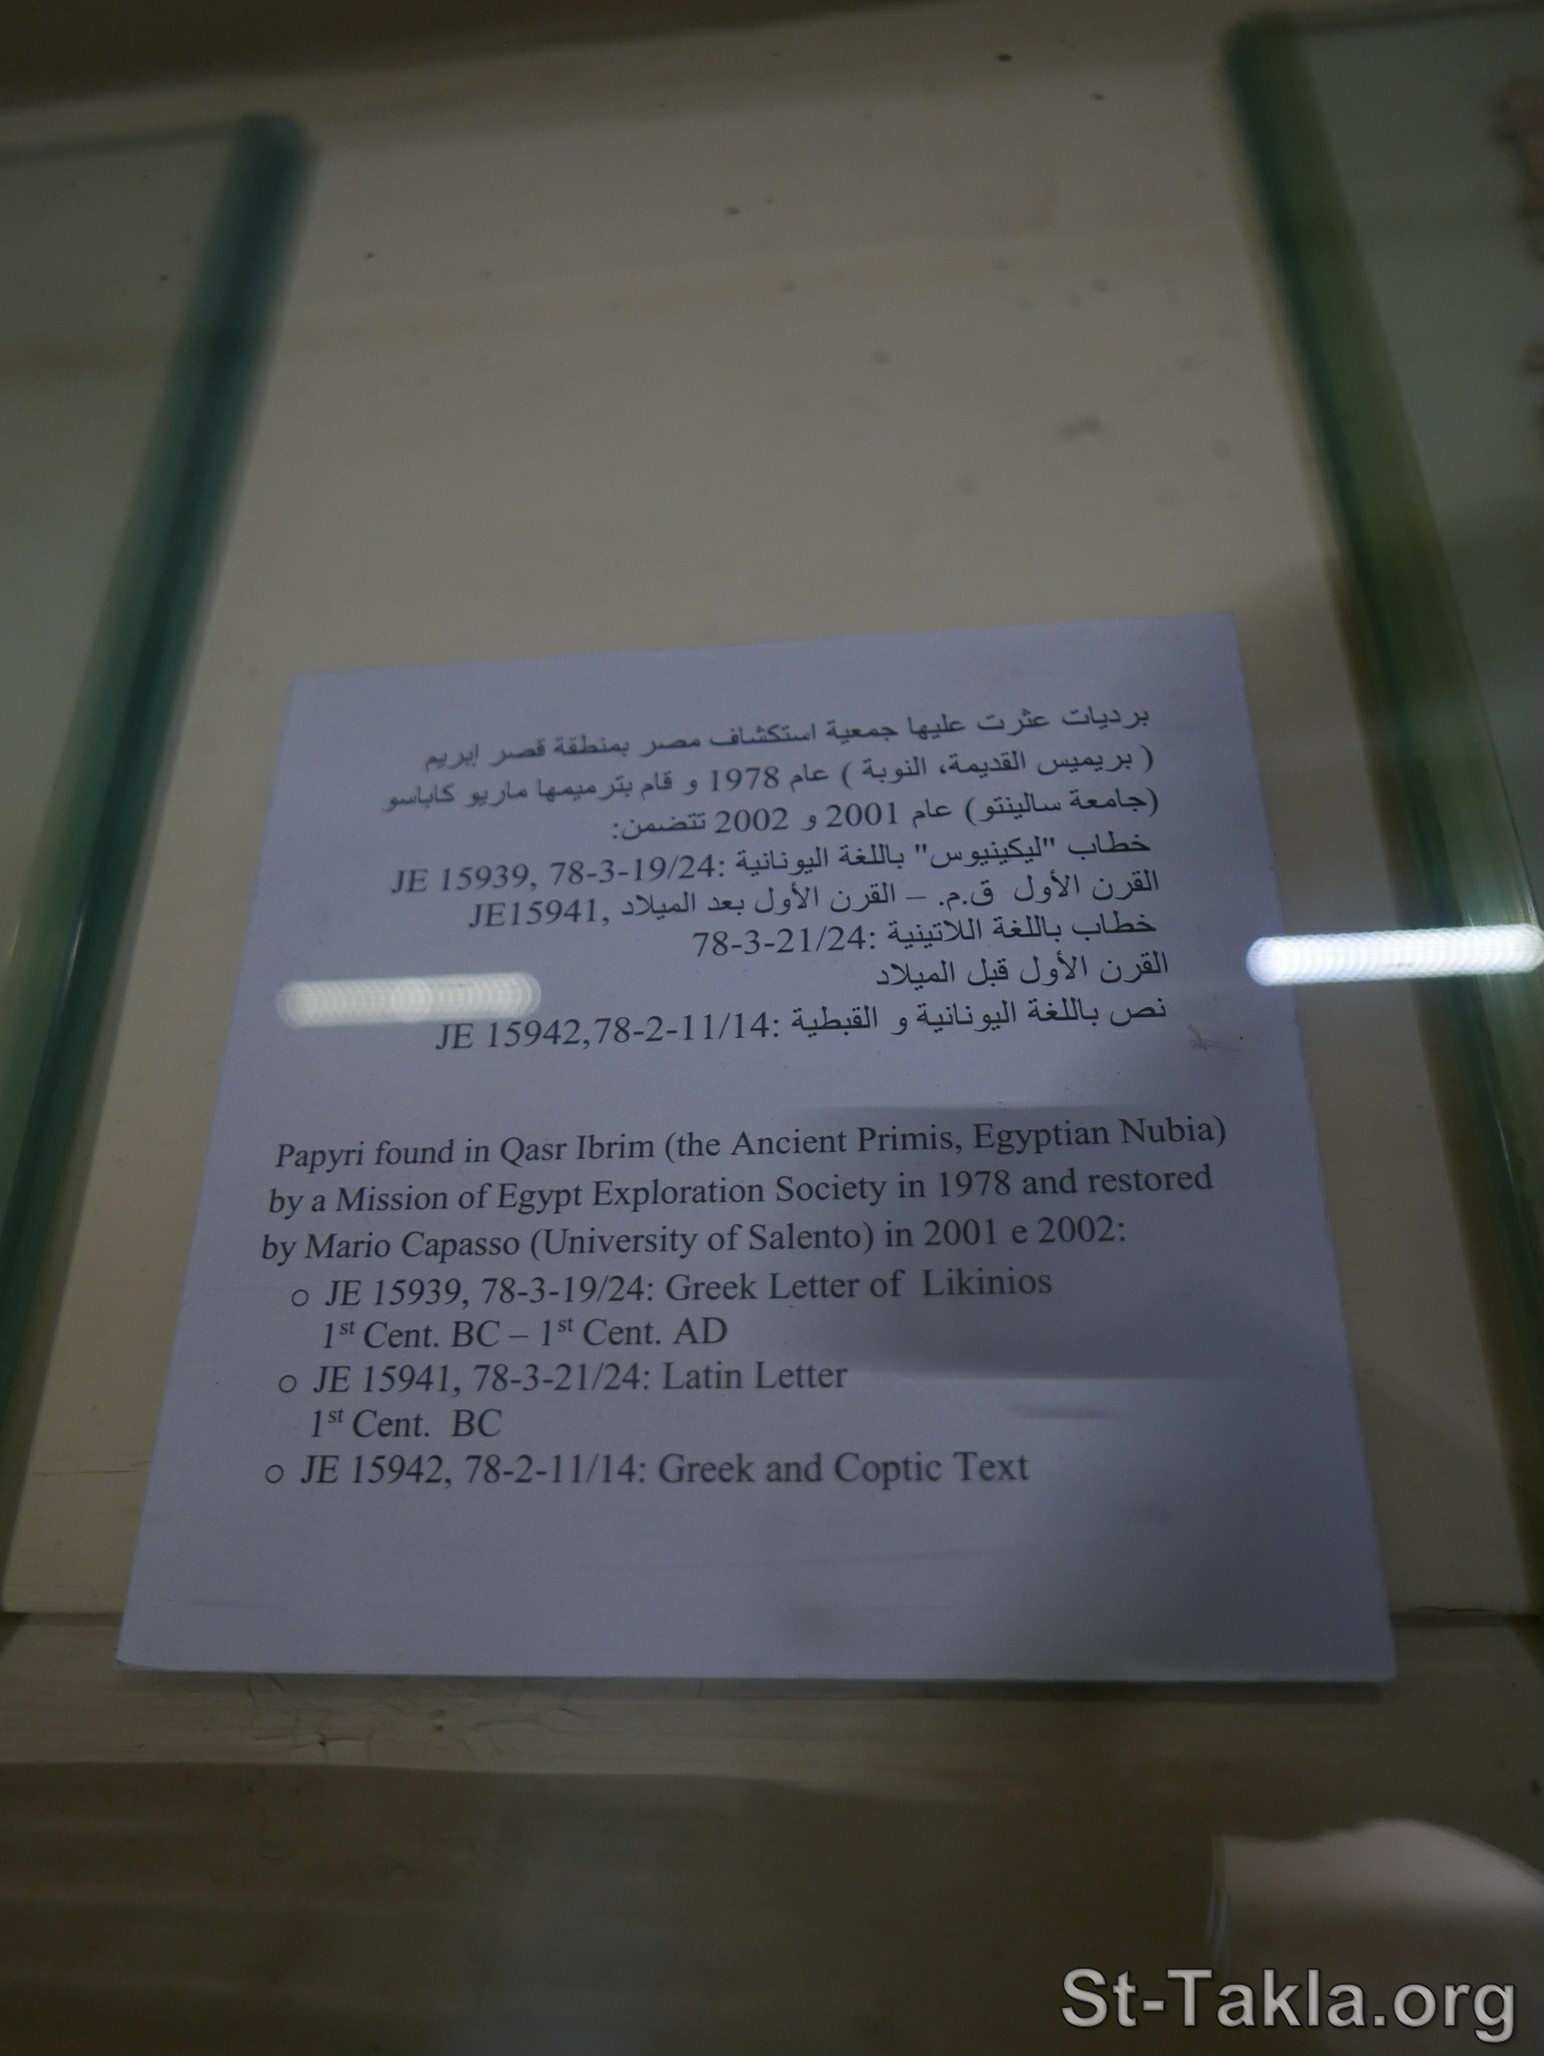 برديات عثرت عليها جمعية استكشاف مصر بمنطقة قصر إبريم
( بريميس القديمة، النوبة ) عام 1978 و قام بترميمها ماريو كاباسو
(جامعة سالينتو) عام 2001 و 2002 تتضمن:
خطاب "ليكينيوس" باللغة اليونانية :JE 15939, 78-3-19/24
القرن الأول ق.م. – القرن الأول بعد الميلاد ,JE15941
خطاب باللغة اللاتينية :78-3-21/24
القرن الأول قبل الميلاد
نص باللغة اليونانية و القبطية :JE 15942,78-2-11/14
Papyri found in Qasr Ibrim (the Ancient Primis, Egyptian Nubia)
by a Mission of Egypt Exploration Society in 1978 and restored
by Mario Capasso (University of Salento) in 2001 e 2002:
○ JE 15939, 78-3-19/24: Greek Letter of Likinios
1st Cent. BC – 1st Cent. AD
○ JE 15941, 78-3-21/24: Latin Letter
1st Cent. BC
○ JE 15942, 78-2-11/14: Greek and Coptic Text
St-Takla.org